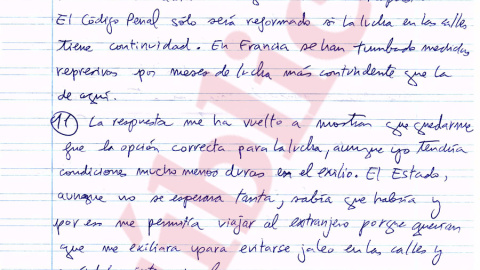 El Código Penal sólo será reformado si la lucha en las calles
tiene continuidad. En Francia se han tumbado medidas
represivas por meses de lucha más contundente que la
de aquí.
11 La respuesta me ha vuelto a mostrar que quedarme
fue la opción correcta para la lucha, aunque yo tendría
condiciones mucho menos duras en el exilio. El Estado,
aunque no se esperara tanta, sabía que habría y
por eso me permitía viajar al extranjero porque querían
que me exiliara para evitarse jaleo en las calles y
Públic